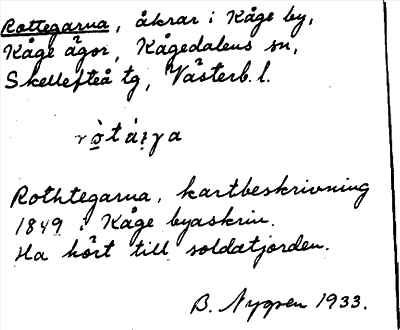 Rottegarna, åkrar i Kåge by,
Kåge ägor, Kågedalens sn,
Skellefteå tg, Västerb. l.
Rothtegarna, kartbeskrivning
1849 i Kåge byaskrin.
Ha hört till soldatjorden.
B. Nygren 1933.